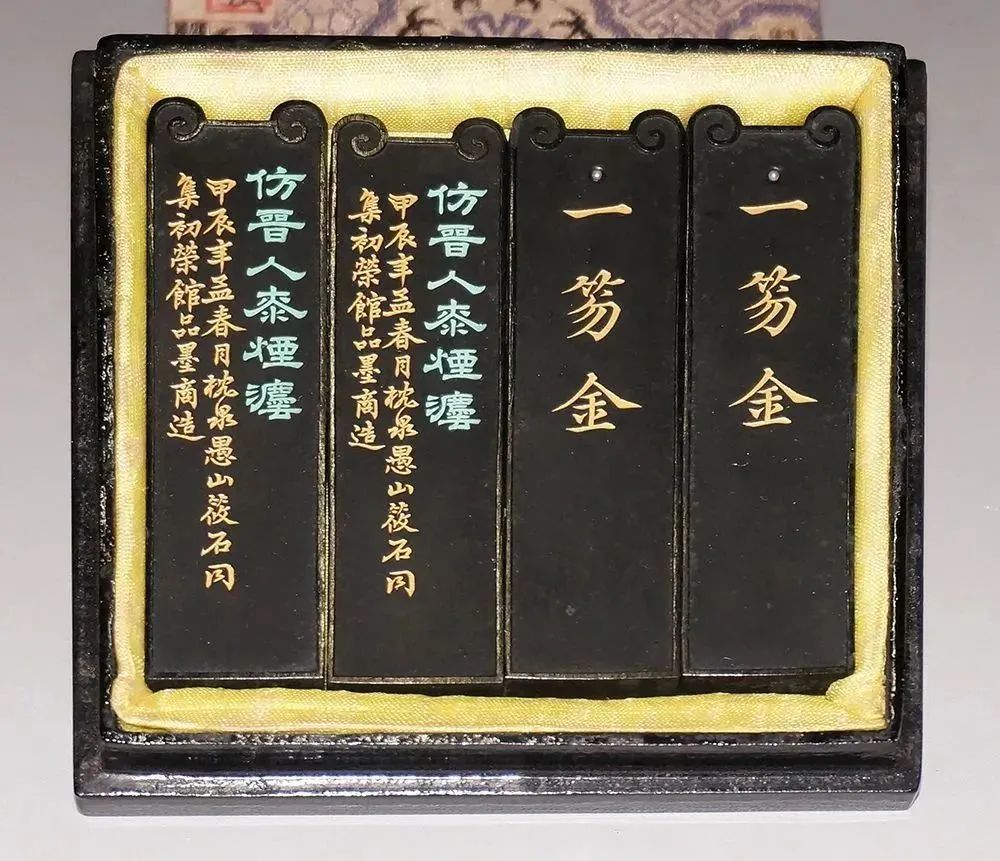 一笏金
一笏金
仿晉人桼煙灋
甲辰年孟春月枕泉愚山筱石同
集初榮館品墨商造
仿晉人桼煙灋
甲辰年孟春月枕泉愚山筱石同
集初榮館品墨商造